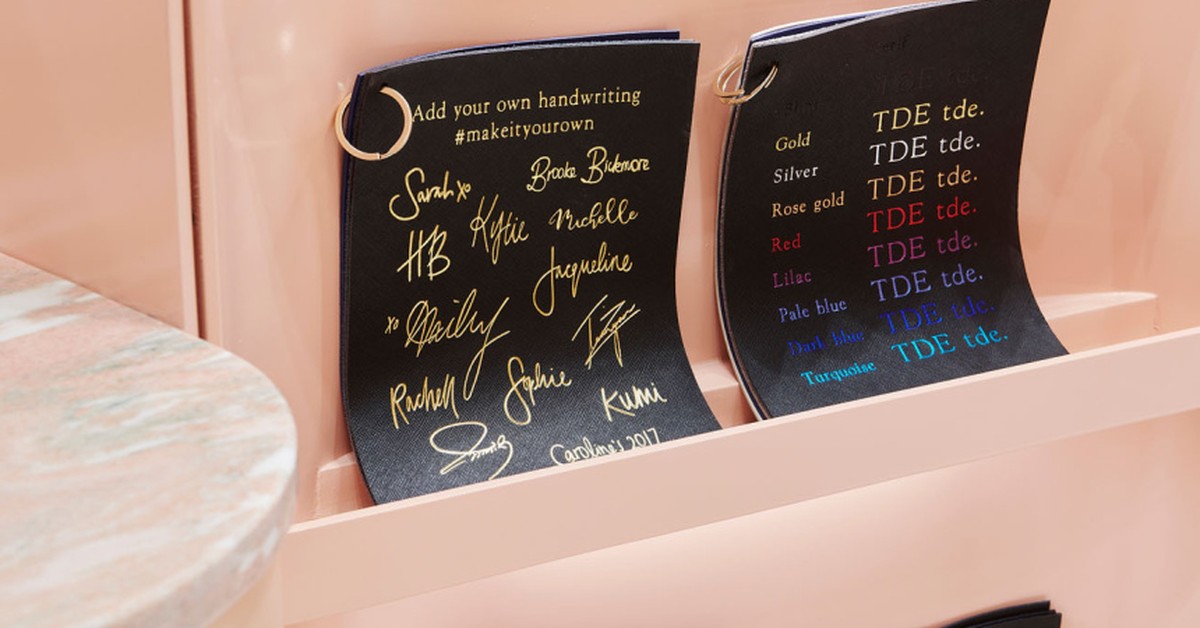 Add your own handwriting
#makeityourown
Sarah xo
Brooke Bickmore
HB
Kytie
Michelle
Jacqueline
xo
Rachell
Sophie
Kumi
Caroline's 2017
TDE tde.
Gold TDE tde.
Silver TDE tde.
Rose gold TDE tde.
Red TDE tde.
Lilac TDE tde.
Pale blue TDE tde.
Dark blue TDE tde.
Turquoise TDE tde.